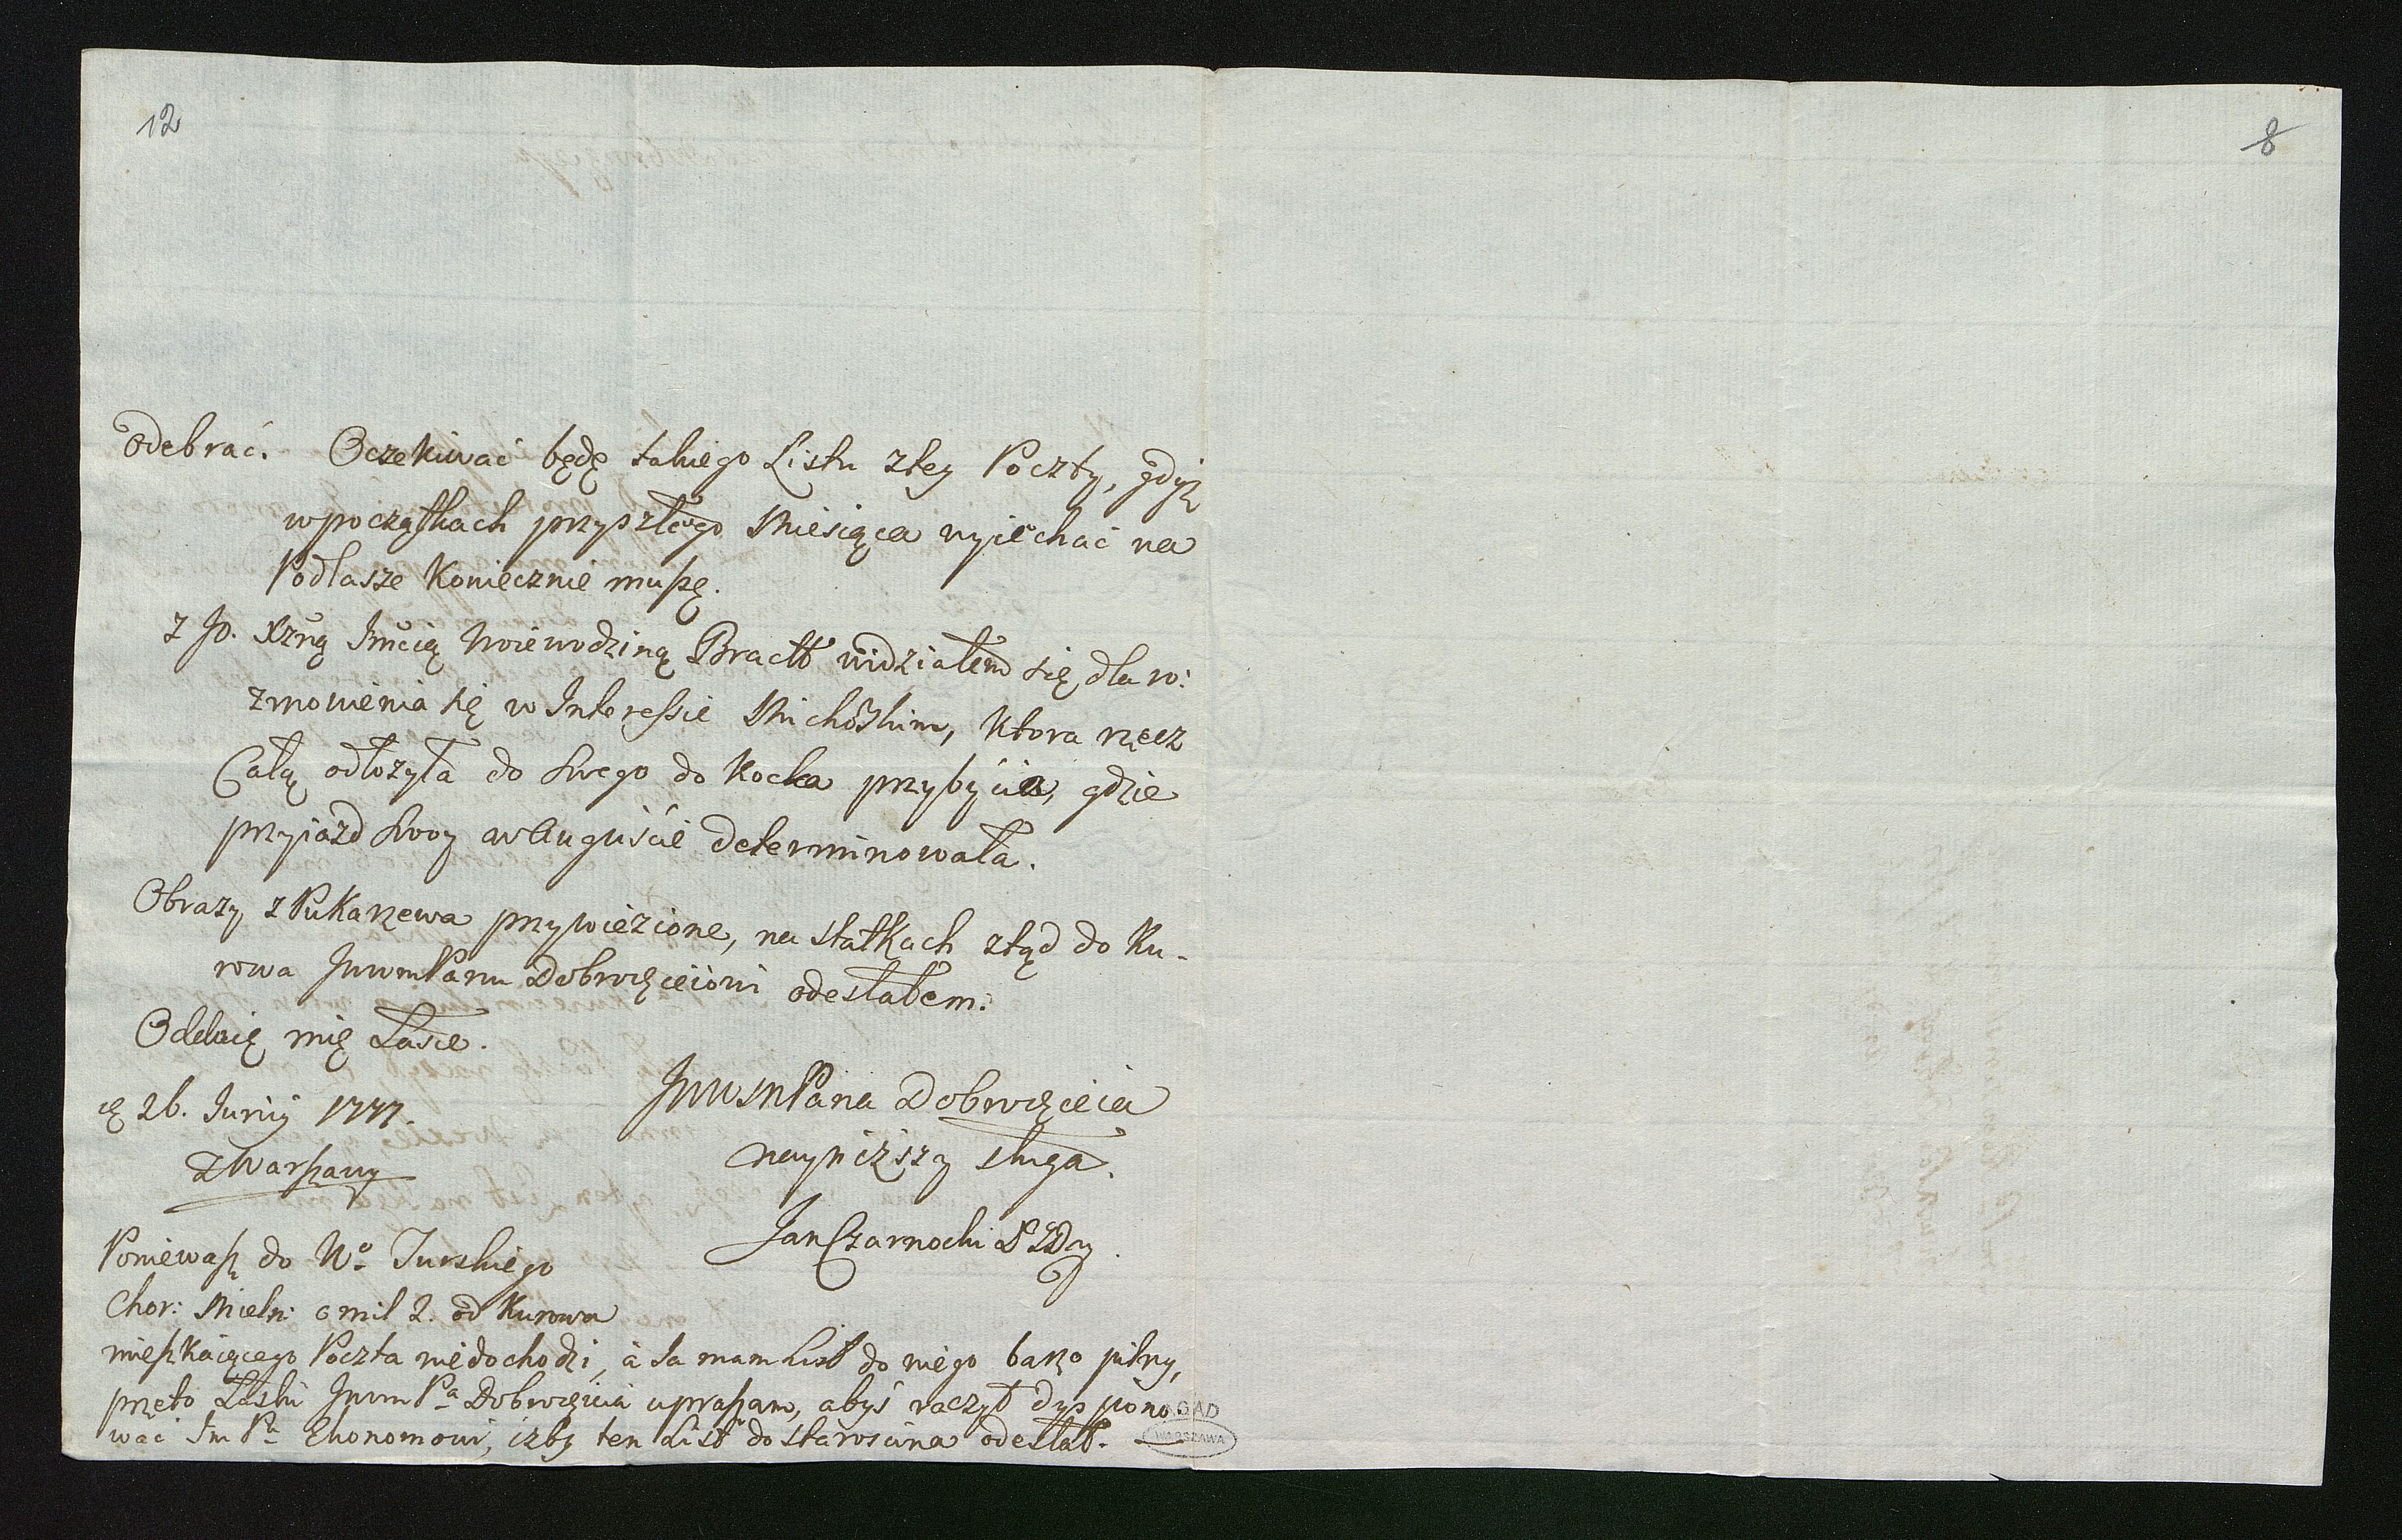 12
8
odebrać. Oczekiwać będę takiego Listu ztey Poczty, gdyż
wpoczątkach przyszłego Miesiąca wyiechać na
Podlasze Koniecznie muszę.
z Jo. Xżną Jmcią Woiewodziną Bracłł widziałem się, dla ro:
zmowienia się w Interessie Michowskim, Ktora rzecz
Całą odłożyła do swego do Kocka przybycia, gdzie
przyiazd swoy w Auguście determinowała.
Obrazy z Pukarzewa przywiezione, na statkach ztąd do Ku-
rowa JwwmPanu Dobrodzieiowi odesłałem.
Oddaię mię Łasce.
JWWMPana Dobrodzieia
26. Junij 1777.
z Warszawy
nayniższy sługa.
Jan Czarnocki
Ponieważ do Wo Turskiego
Chor: Mieln: o mil 2. od Kurowa
mieszkaiącego Poczta niedochodzi, à Ja mam List do niego barzo pilny,
przeto Łaski Jwwm Pa Dobrodzieia upraszam, abyś raczył dyspono-
wać Jm Pu Ekonomowi, iżby ten List do Starościna odesłał.
AGAD
WARSZAWA